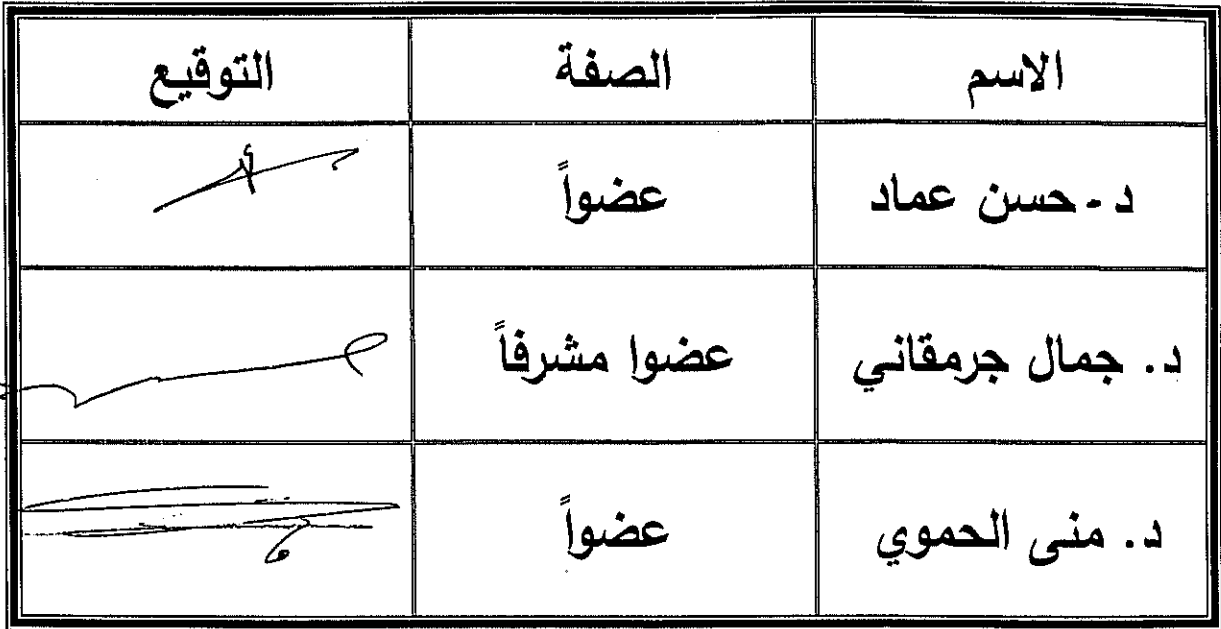 الاسم الصفة التوقيع
د - حسن عماد عضواً
د. جمال جرمقاني عضوا مشرفاً
د. منى الحموي عضواً